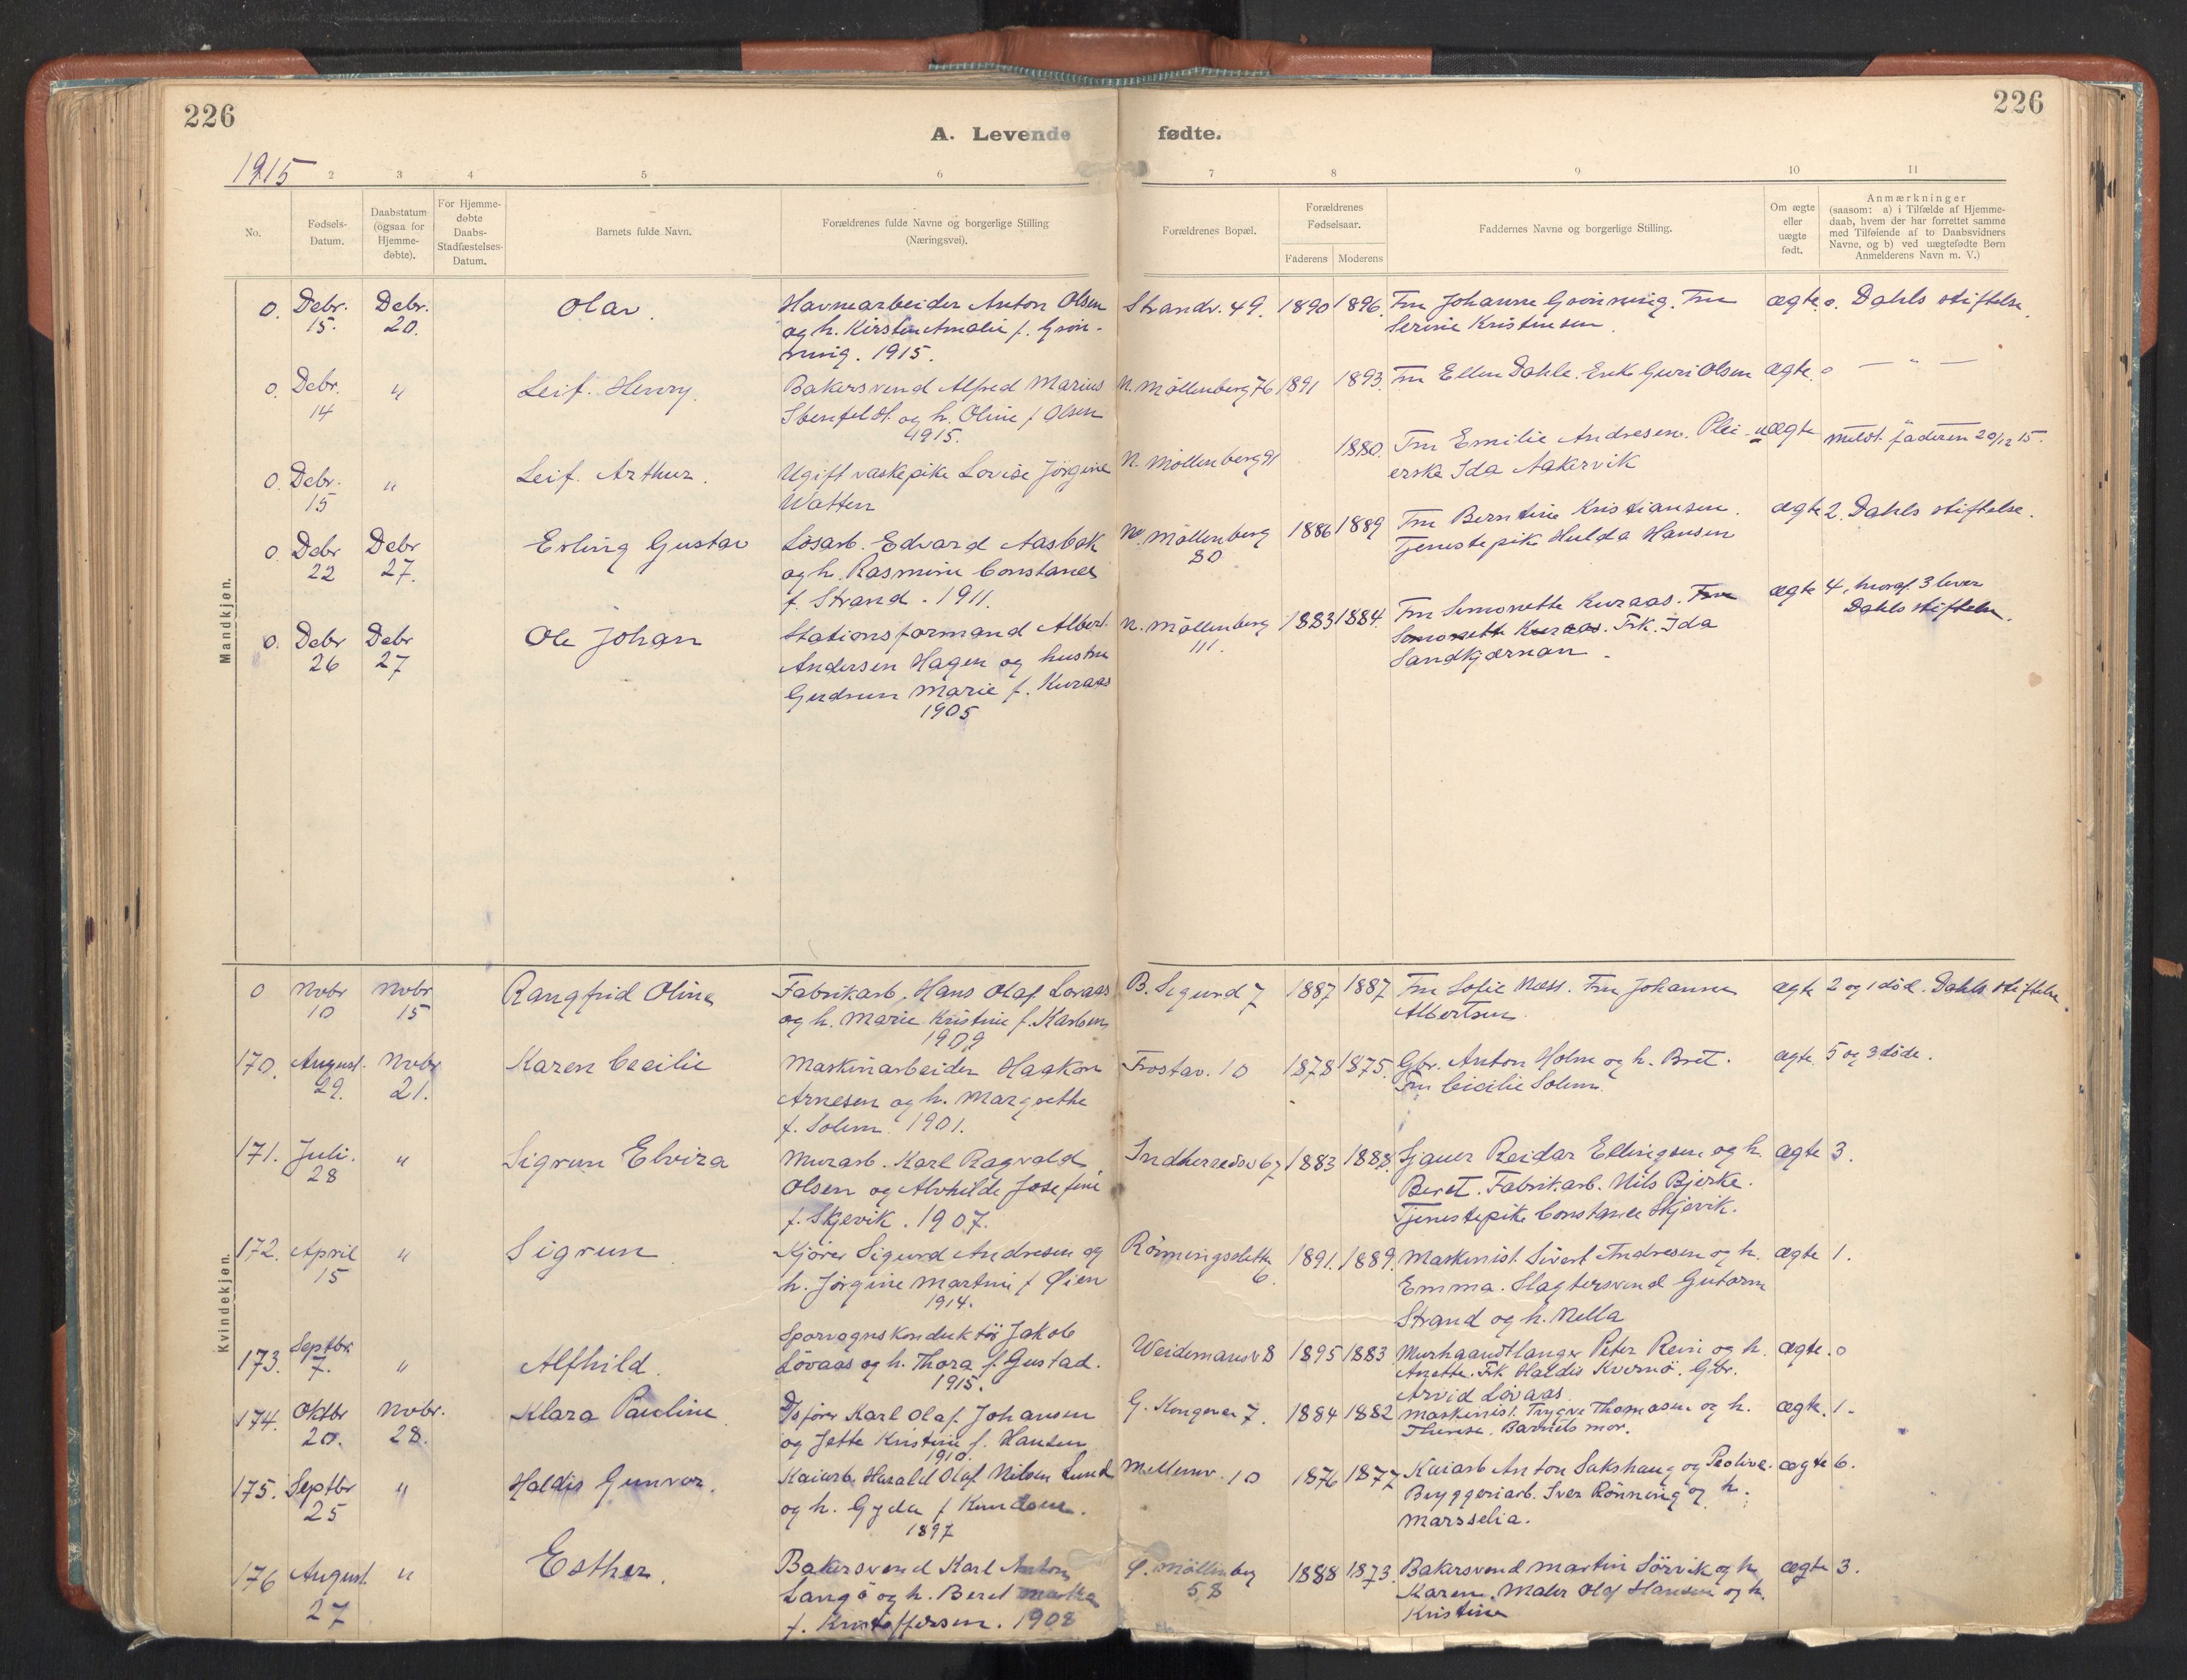 226
226
A. Levende fødte.
1915
2 3 4 5 6 7 8 9 10 11
No.
Fødsels-
Datum.
Daabstatum
(ogsaa for
Hjemme-
døbte).
For Hjemme-
døbte
Daabs-
Stadfæstelses-
Datum.
Barnets fulde Navn.
Forældrenes fulde Navne og borgerlige Stilling
(Næringsvei).
Forældrenes Bopæl.
Forældrenes
Fødselsaar.
Faderens Moderens
Faddernes Navne og borgerlige Stilling.
Om ægte
eller
uægte
født.
Anmærkninger
(saasom: a) i Tilfælde af Hjemme-
daab, hvem der har forrettet samme
med Tilføiende af to Daabsvidners
Navne, og b) ved uægtefødte Børn
Anmelderens Navn m. V.)
Mandkjøn.
0. Debr. 15. Debr. 20.
Olav.
Havnearbeider Anton Olsen
og h. Kirsten Amalie f. Grøn-
ning. 1915.
Strandv. 49. 1890 1896.
Fru Johanne Grønning. Fru
Serine Kristensen.
ægte. 0. Dahls stiftelse.
0. Debr. 14 "
Leif. Henry.
Bakersvend Alfred Marius
Stenfeldt og h. Oline f. Olsen
1915.
N. Møllenberg 76 1891 1893.
Fru Ellen Dahle. Enke Guri Olsen
ægte. 0 — " —
0. Debr. 15 "
Leif. Arthur.
Ugift vaskepike Lovise Jørgine
Watten
N. Møllenberg 91 1880.
Fru Emilie Andresen. Plei-
erske Ida Aakervik
uægte meldt faderen 20/12 15.
0. Debr 22 Debr 27.
Erling Gustav
Løsarb. Edvard Aasbak
og h. Rasmine Constance
f. Strand. 1911.
N. Møllenberg
80
1886 1889
Fru Berntine Kristiansen.
Tjenestepike Hulda Hansen
ægte 2. Dahls stiftelse.
0. Debr 26 Debr 27
Ole Johan
Stationsformand Albert
Andersen Hagen og hustru
Gudrun Marie f. Kuraas
1905
N. Møllenberg
111.
1883 1884.
Fru Simonette Kuraas. Fru
Simonette Kuraas. Frk. Ida
Sandkjærnan.
ægte 4, hvoraf 3 lever
Dahls stiftelse.
Kvindekjøn.
0 Nvbr 10 Nvbr 15
Rangfrid Oline
Fabrikarb. Hans Olaf Lovaas
og h. Marie Kristine f. Karlsen
1909
B. Sigurd 7 1887 1887
Fru Sofie Næss. Fru Johanne
Albertsen.
ægte 2 og 1 død. Dahls stiftelse
170. August. 29. Nvbr 21.
Karen Cecilie
Maskinarbeider Haakon
Arnesen og h. Margrethe
f. Solem. 1901.
Frostav. 10 1878 1875.
Gbr. Anton Holm og h. Bret.
Fru Cicilie Solem.
ægte. 5 og 3 døde.
171. Juli. 28 "
Sigrun Elvira
Murarb. Karl Ragvald
Olsen og Alvhilde Josefine
f. Skjevik. 1907.
Indherredsv 67 1883 1888.
Sjauer Reidar Ellingsen og h.
Beret. Fabrikarb. Nils Bjerke.
Tjenestepike Constance Skjevik.
ægte 3.
172. April 15 "
Sigrun
Kjører Sigurd Andresen og
h. Jørgine Martine f. Øien
1914.
Rønningsletta
6.
1891. 1889.
Maskinist. Sivert Andresen og h.
Emma. Slagtersvend Gutorm
Strand og h. Nella
ægte 1.
173. Septbr. 7. "
Alfhild.
Sporvognskonduktør Jakob
Løvaas og h. Thora f. Gustad.
1915.
Weidemansv 8 1895 1883
Murhaandtlanger Peter Rein og h.
Anette. Frk. Haldis Kvernø. Gbr.
Arvid Løvaas.
ægte. 0
174. Oktbr 20. Nvbr. 28.
Klara Pauline
D/sfører Karl Olaf Johansen
og Jette Kristine f. Hansen
1910.
G. Kongevei 7. 1884 1882
Maskinist. Trygve Thomasen og h.
Therese. Barnets mor.
ægte. 1.
175. Septbr 25 "
Haldis Gunvor.
Kaiarb. Harald Olaf Nilsen Lund
og h. Gyda f. Knudsen.
1897
Mellemv. 10 1876 1877
Kaiarb Anton Sakshaug og Peolive.
Bryggeriarb. Iver Rønning og h.
Marsselia.
ægte 6.
176 August. 27 "
Esther.
Bakersvend Karl Anton
Langø og h. Beret Marta
f. Kristoffersen. 1908
Ø. Møllenberg
58
1888 1873.
Bakersvend Martin Sørvik og h.
Karen. Maler Olaf Hansen og h.
Kristine
ægte 3.